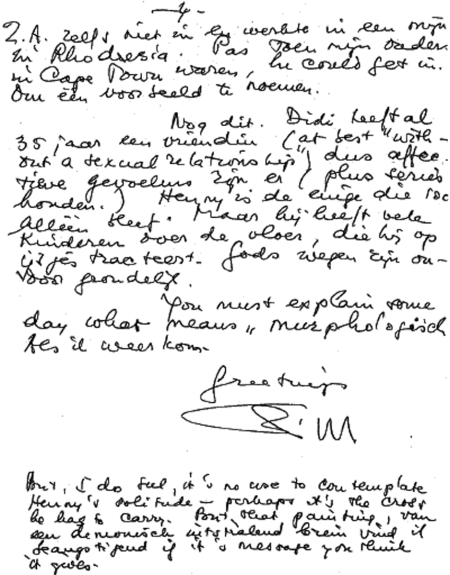 -4-
Z.A. zelfs niet in hy werkte in een mijn
in Rhodesia. Pas toen mijn ouders
in Cape Town waren, he could get in.
Om één voorbeeld te noemen.
Nog dit. Didi heeft al
35 jaar een vriendin (at best "with-
out a sexual relationship") dus affec-
tieve gevoelens zijn er (plus series
honden.) Henny is de enige die
alléén leeft. Maar hij heeft vele
kinderen over de vloer, die hij op
ijsjes tracteert. Gods wegen zijn on-
doorgrondelijk.
You must explain some
day what means "murphologisch
Als ik weer kom.
Greetings
But, I do feel, it's no use to contemplate
Henny's solitude - perhaps it's the cross
he has to carry. But that painting, van
een demonisch uitstralend brein vind ik
beangstigend if it's message you think
it gives.